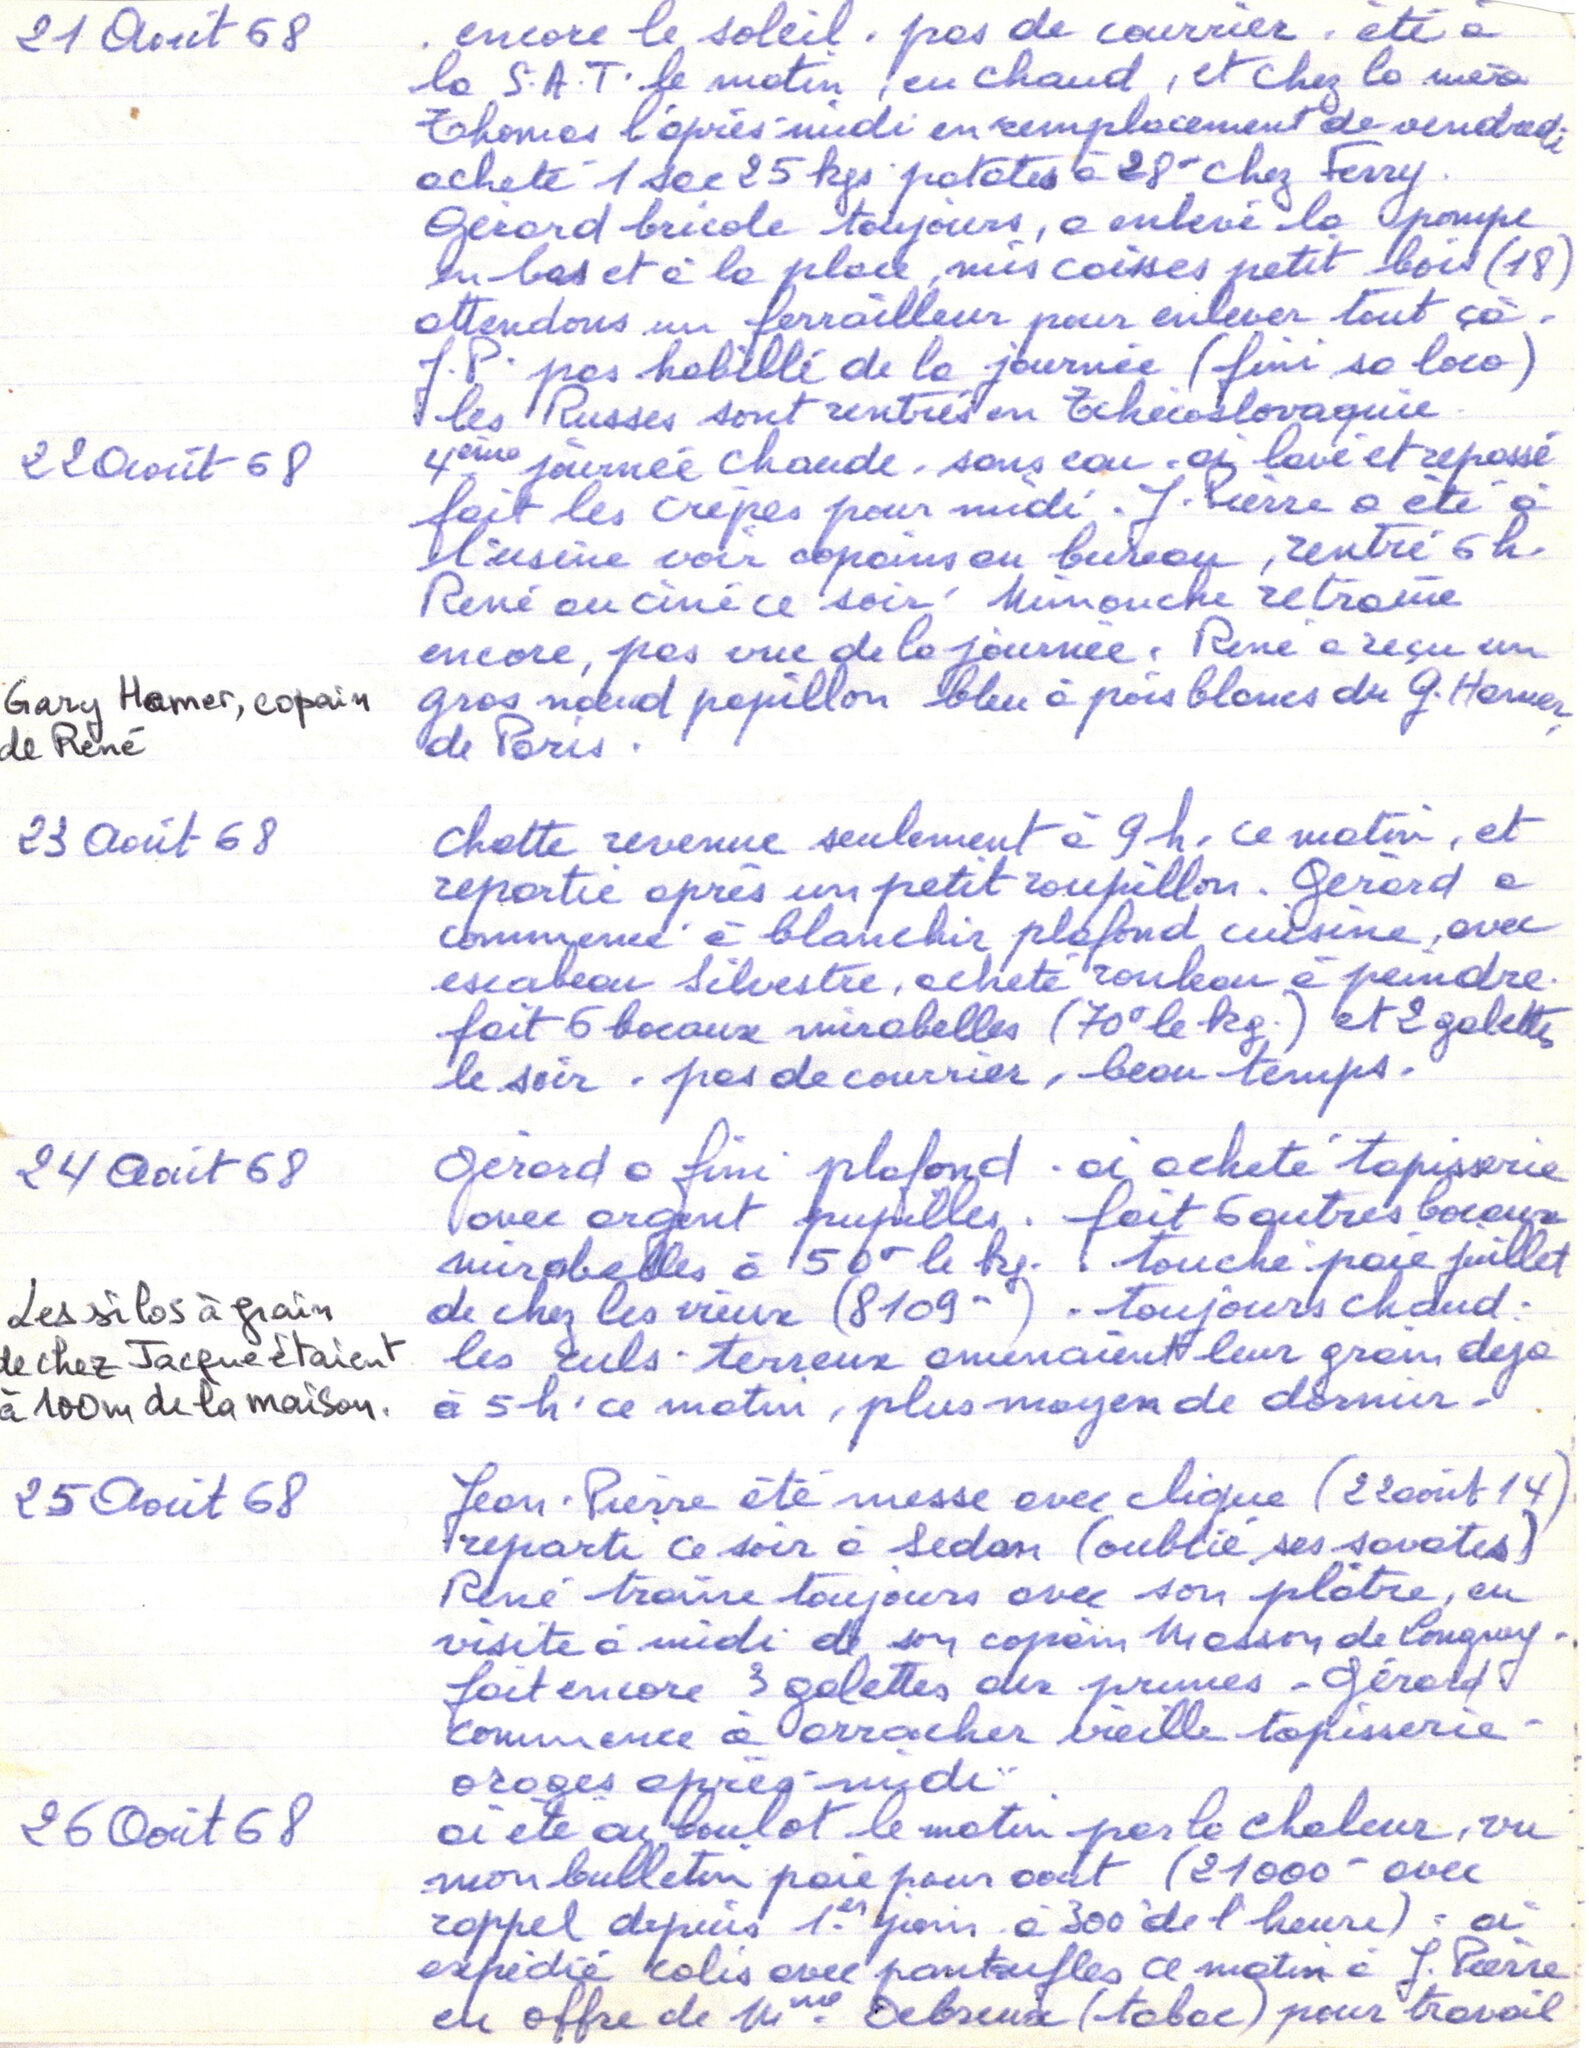 21 Août 68 . encore le soleil. pas de courrier. été à
la S.A.T. le matin, eu chaud, et chez la mère
Thomas l'après-midi en remplacement de vendredi
acheté 1 sac 25 kgs patates à 28- chez Ferry.
Gérard bricole toujours, a enlevé la pompe
en bas et à la place, mis caisses petit bois (18)
attendons un ferrailleur pour enlever tout çà.
J.P. pas habillé de la journée (fini sa loco)
les Russes sont rentrés en Tchécoslovaquie.
22 Août 68 4ème journée chaude. sans eau. ai lavé et repassé
fait les crèpes pour midi. J. Pierre a été à
l'usine voir copains au bureau, rentré 6h.
René au ciné ce soir. Mimouche retraîne
encore, pas vue de la journée. René a reçu un
Gary Hamer, copain
de René
gros nœud papillon bleu à pois blancs du G. Hamer,
de Paris.
23 Août 68 chatte revenue seulement à 9h. ce matin, et
repartie après un petit roupillon. Gérard a
commencé à blanchir plafond cuisine, avec
escabeau Silvestre, acheté rouleau à peindre.
fait 6 bocaux mirabelles (70- le kg.) et 2 galettes
le soir. pas de courrier, beau temps.
24 Août 68 Gérard a fini plafond. ai acheté tapisserie
avec argent pupilles. fait 6 autres bocaux
mirabelles à 50- le kg. touché paie juillet
Les silos à grain
de chez Jacque étaient
à 100m de la maison.
de chez les vieux (8109-). toujours chaud.
les culs-terreux amenaient leur grain déjà
à 5h. ce matin, plus moyen de dormir.
25 Août 68 Jean-Pierre été messe avec clique (22 août 14)
reparti ce soir à Sedan (oublié ses savates)
René traîne toujours avec son plâtre, eu
visite à midi de son copain Masson de Longwy.
fait encore 3 galettes aux prunes - Gérard
commence à arracher vieille tapisserie -
orages après-midi.
26 Août 68 ai été au boulot le matin par la chaleur, vu
mon bulletin paie pour août (21000- avec
rappel depuis 1er juin à 300 de l'heure). ai
expédié colis avec pantoufles ce matin à J. Pierre
eu offre de Mme (tabac) pour travail